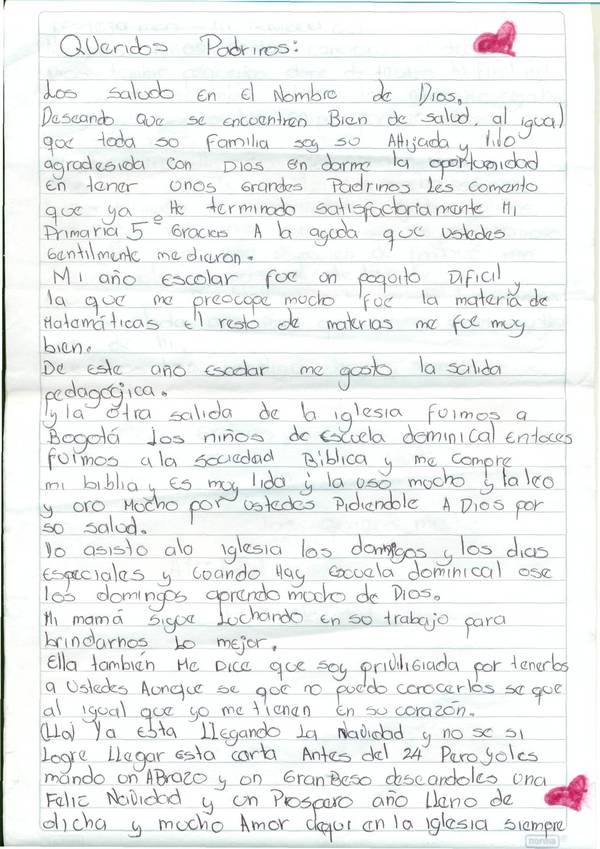 Queridos Padrinos:
Los saludo en el Nombre de Dios,
Deseando Que se encuentren Bien de salud, al igual
que toda so Familia soy su Ahijada y
agradesida con Dios en darme la oportunidad
en tener unos Grandes Padrinos Les comento
que ya He terminado satisfactoriamente Mi
Primaria 5º Gracias A la aguda que ustedes
Gentilmente me dieron.
Mi año Escolar fue un poquito Dificil y
la que me preocupe mucho fue la materia de
Matemáticas El resto de materias me fue muy
bien.
De este año escolar me gusto la salida
pedagógica.
y la otra salida de la iglesia fuimos a
Bogotá Los niños de escuela dominical Entoces
fuimos a la sociedad Bíblica y me compre
mi biblia y es muy lida y la uso mucho y la leo
y oro Mucho por ustedes Pidiendole A Dios por
so salud.
Yo asisto ala iglesia los domingos y los dias
especiales y cuando Hay escuela dominical ose
los domingos aprendo mucho de Dios.
Mi mamá sigue Luchando en so trabajo para
brindarnos Lo mejor.
Ella también Me Dice que soy priviligiada por tenerlos
a Ustedes Aunque se que no puedo conocerlos se que
al igual que yo me tienen en su corazón.
(Lla) Ya Esta Llegando La Navidad y no se si
Logre Llegar Esta carta Antes del 24 Pero yo les
mando un ABrazo y un Gran Beso deseandoles una
Feliz Navidad y un Prospero año Lleno de
dicha y mucho Amor dequi en la iglesia siempre
norma